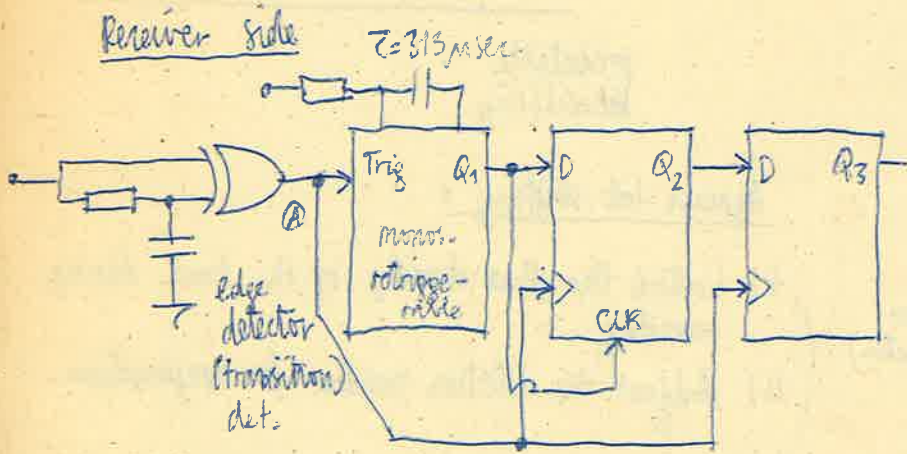 Receiver side
τ=313 μsec
Trig
Q1
D
Q2
D
Q3
A
monos.
retrigge-
rable
CLK
edge
detector
(transition)
det.